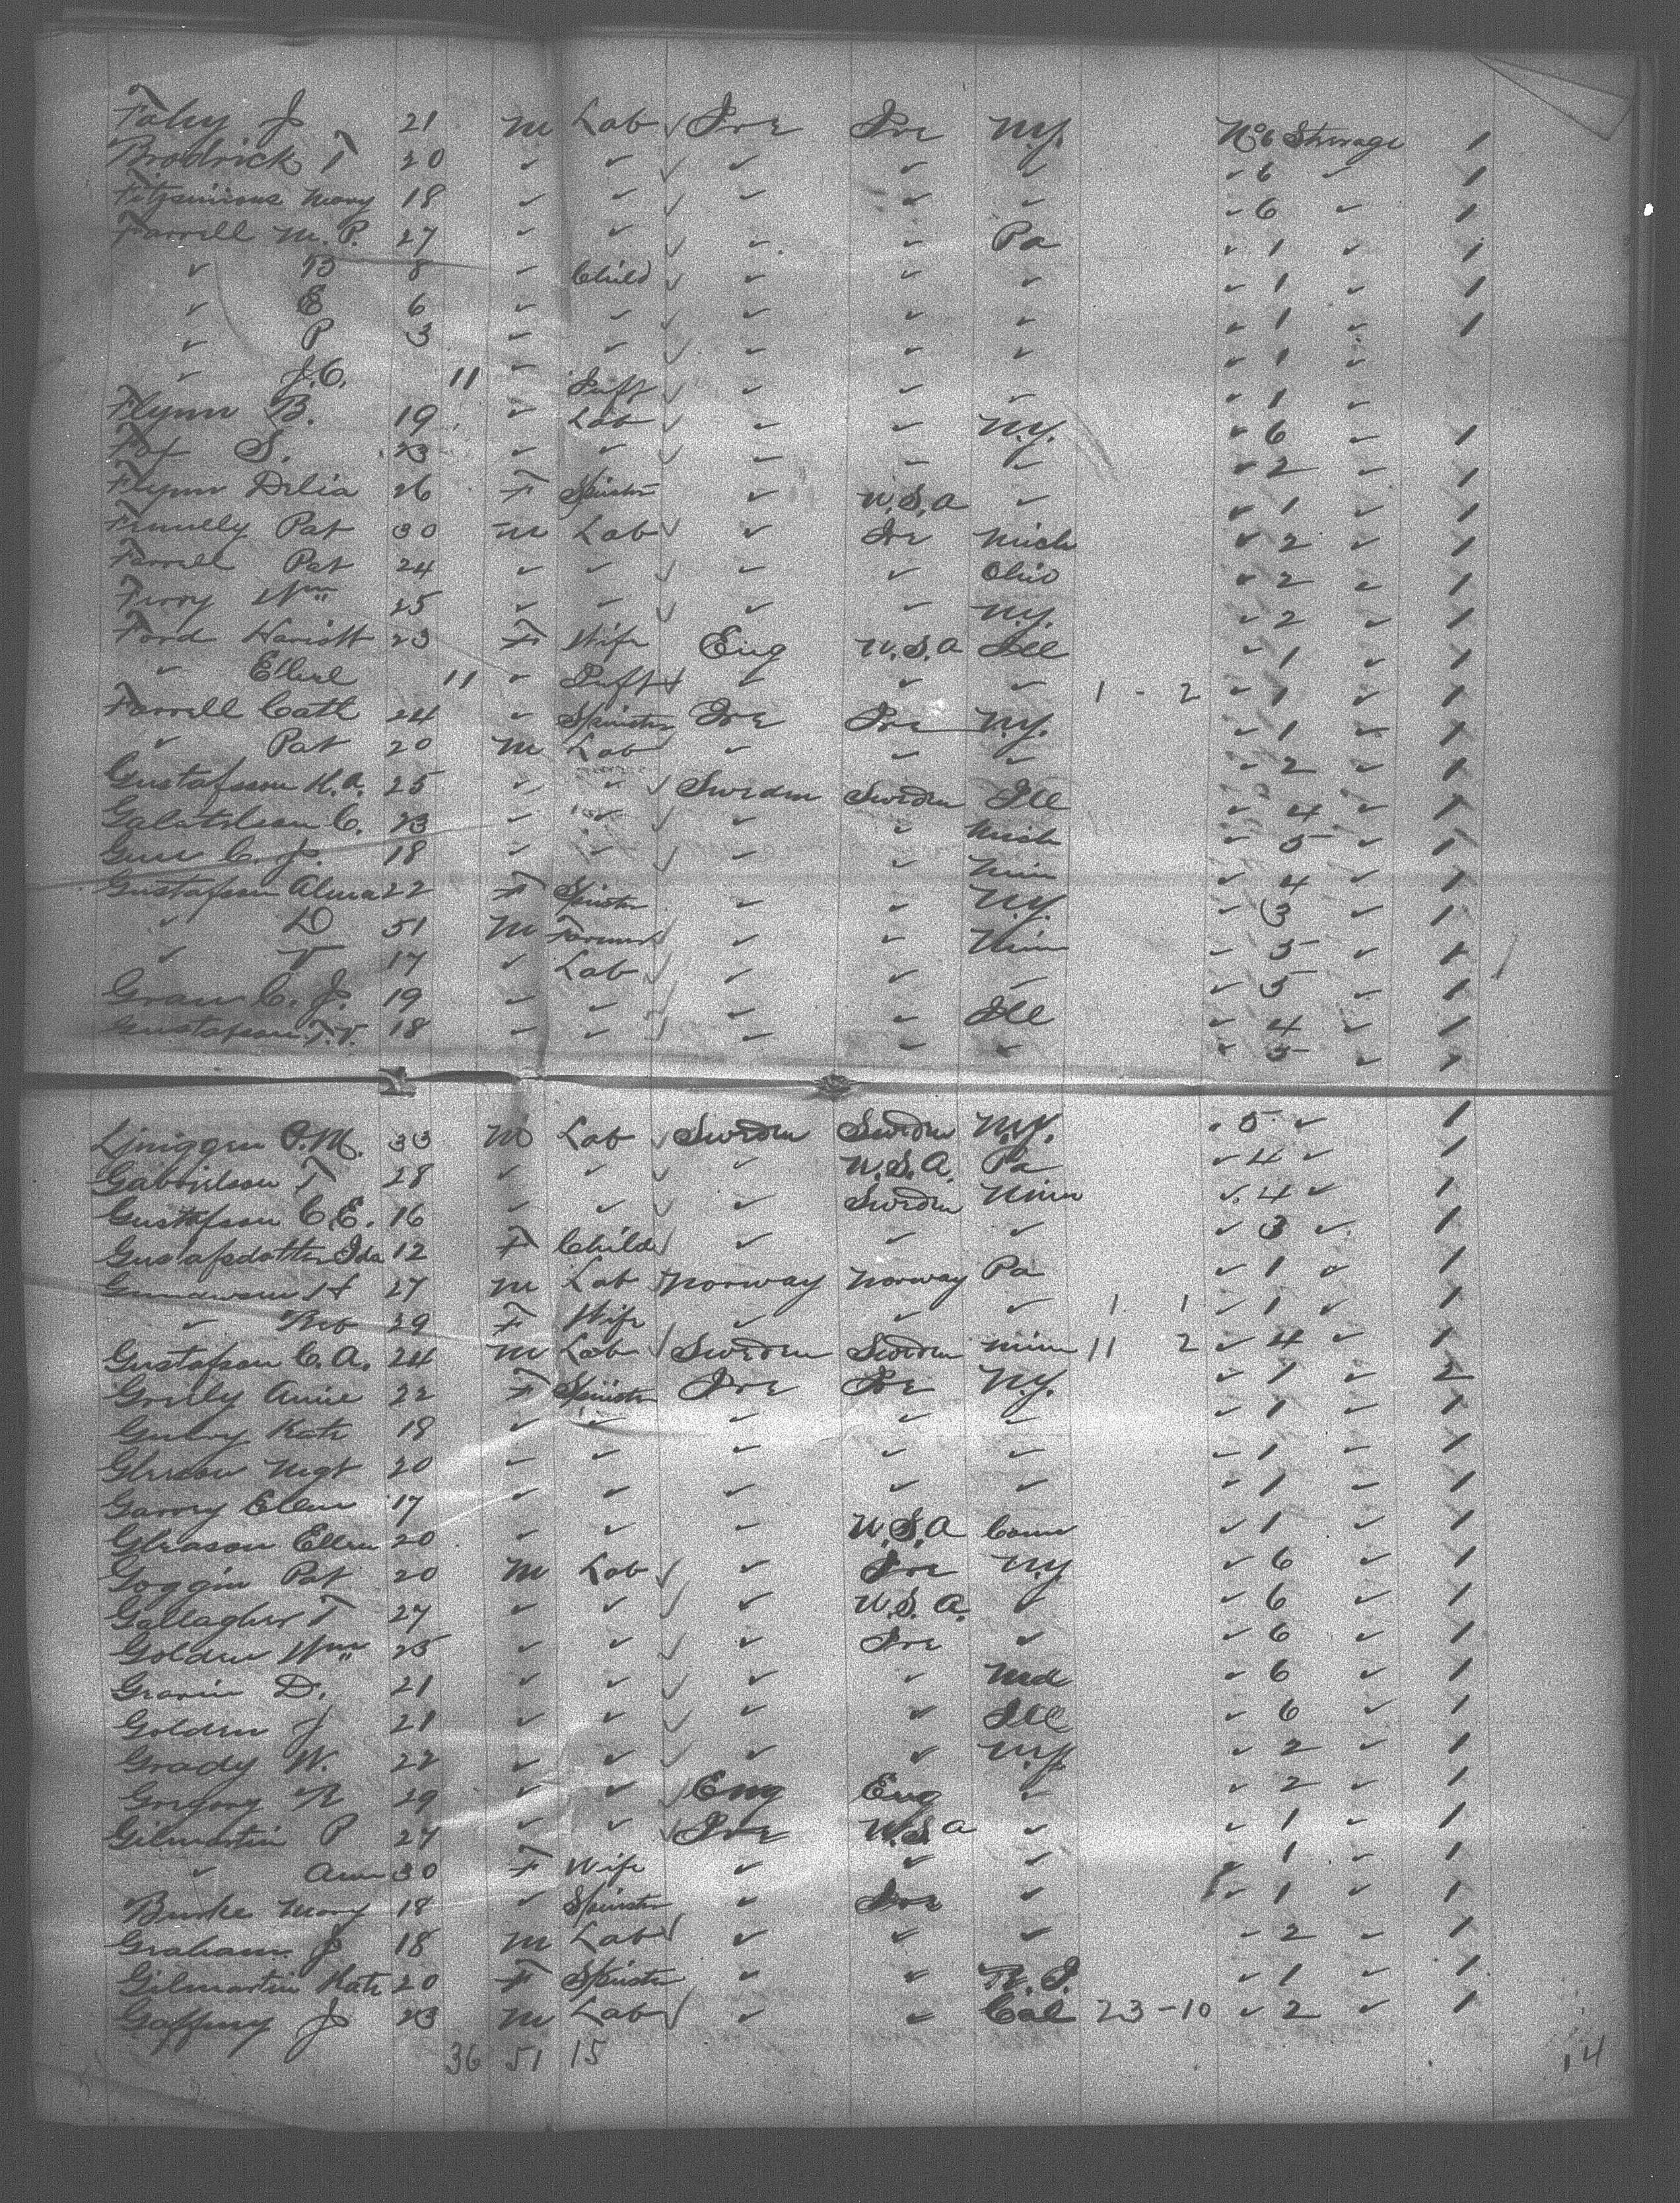 Fahy J 21 m Lab ✓ Ire Ire N.Y. No 6 Steerage 1
Brodrick T 20 ✓ ✓ ✓ ✓ ✓ ✓ ✓ 6 ✓ 1
Fitzsimons Mary 18 ✓ ✓ ✓ ✓ ✓ ✓ ✓ 6 ✓ 1
Farrell M. P. 27 ✓ ✓ ✓ ✓ ✓ Pa ✓ 1 ✓ 1
✓ B 8 ✓ Child ✓ ✓ ✓ ✓ ✓ 1 ✓ 1
✓ E 6 ✓ ✓ ✓ ✓ ✓ ✓ ✓ 1 ✓ 1
✓ P 3 ✓ ✓ ✓ ✓ ✓ ✓ ✓ 1 ✓
✓ J.C. 11 ✓ Inft ✓ ✓ ✓ ✓ ✓ 1 ✓
Flynn B. 19 ✓ Lab ✓ ✓ ✓ N.Y. ✓ 6 ✓ 1
S. 23 ✓ ✓ ✓ ✓ ✓ ✓ ✓ 2 ✓ 1
Flynn Delia 26 F Spinster ✓ U.S.A ✓ ✓ 1 ✓ 1
Pat 30 m Lab ✓ ✓ Ire Mich ✓ 2 ✓ 1
Farrell Pat 24 ✓ ✓ ✓ ✓ ✓ Ohio ✓ 2 ✓ 1
Ferry Wm 25 ✓ ✓ ✓ ✓ ✓ N.Y. ✓ 2 ✓ 1
Ford Hariott 23 F Wife Eng U.S.A Ill ✓ 1 ✓ 1
✓ Ethel 11 ✓ Inft ✓ ✓ ✓ 1 - 2 ✓ 1 ✓ 1
Farrell Cath 24 ✓ Spinster Ire Ire N.Y. ✓ 1 ✓ 1
✓ Pat 20 m Lab ✓ ✓ ✓ ✓ ✓ 2 ✓ 1
Gustafsson K.A. 25 ✓ ✓ ✓ Sweden Sweden Ill ✓ 4 ✓ 1
C. 23 ✓ ✓ ✓ ✓ ✓ Mich ✓ 5 ✓ 1
C. J. 18 ✓ ✓ ✓ ✓ ✓ Minn ✓ 4 ✓ 1
Gustafsson Alma 22 F Spinster ✓ ✓ N.Y. ✓ 3 ✓ 1
✓ D 51 M Farmer ✓ ✓ ✓ Minn ✓ 5 ✓ 1
✓ V 17 ✓ Lab ✓ ✓ ✓ ✓ ✓ 5 ✓ 1
Gran C. J. 19 ✓ ✓ ✓ ✓ ✓ Ill ✓ 4 ✓ 1
Gustafsson F.V. 18 ✓ ✓ ✓ ✓ ✓ ✓ ✓ 5 ✓ 1
P.M. 33 M Lab ✓ Sweden Sweden N.Y. ✓ 5 ✓ 1
Gabrielson T 28 ✓ ✓ ✓ ✓ U.S.A. Pa ✓ 4 ✓ 1
Gustafsson C.E. 16 ✓ ✓ ✓ ✓ Sweden Minn ✓ 4 ✓ 1
Gustafsdotter Ida 12 F Child ✓ ✓ ✓ ✓ ✓ 3 ✓ 1
H 27 M Lab ✓ Norway Norway Pa ✓ 1 ✓ 1
✓ Reb 29 F Wife ✓ ✓ ✓ 1 1 ✓ 1 ✓ 1
Gustafson C.A. 24 M Lab ✓ Sweden Sweden Minn 11 2 ✓ 4 ✓ 1
Annie 22 F Spinster Ire Ire N.Y. ✓ 1 ✓ 2
Kate 18 ✓ ✓ ✓ ✓ ✓ ✓ 1 ✓ 1
Mgt 20 ✓ ✓ ✓ ✓ ✓ ✓ 1 ✓ 1
Garry Ellen 17 ✓ ✓ ✓ ✓ ✓ ✓ 1 ✓ 1
Gleason Ellen 20 ✓ ✓ ✓ U.S.A Conn ✓ 1 ✓ 1
Goggin Pat 20 M Lab ✓ ✓ Ire N.Y. ✓ 6 ✓ 1
Gallagher T 27 ✓ ✓ ✓ ✓ U.S.A. ✓ ✓ 6 ✓ 1
Golden Wm 25 ✓ ✓ ✓ ✓ Ire ✓ ✓ 6 ✓ 1
Gravin D. 21 ✓ ✓ ✓ ✓ ✓ Md ✓ 6 ✓ 1
Golden J 21 ✓ ✓ ✓ ✓ ✓ Ill ✓ 6 ✓ 1
Grady W. 22 ✓ ✓ ✓ ✓ ✓ N.Y. ✓ 2 ✓ 1
Gregory R 29 ✓ ✓ ✓ Eng Eng ✓ ✓ 2 ✓ 1
Gilmartin P 27 ✓ ✓ ✓ Ire U.S.A ✓ ✓ 1 ✓ 1
✓ Ann 30 F Wife ✓ ✓ ✓ ✓ 1 ✓ 1
Burke Mary 18 ✓ Spinster ✓ Ire ✓ ✓ 1 ✓ 1
Graham J 18 M Lab ✓ ✓ ✓ ✓ ✓ 2 ✓ 1
Gilmartin Kate 20 F Spinster ✓ ✓ R.I. ✓ 1 ✓ 1
Gaffney J 23 M Lab ✓ ✓ ✓ Cal 23-10 ✓ 2 ✓ 1
36 51 15
14